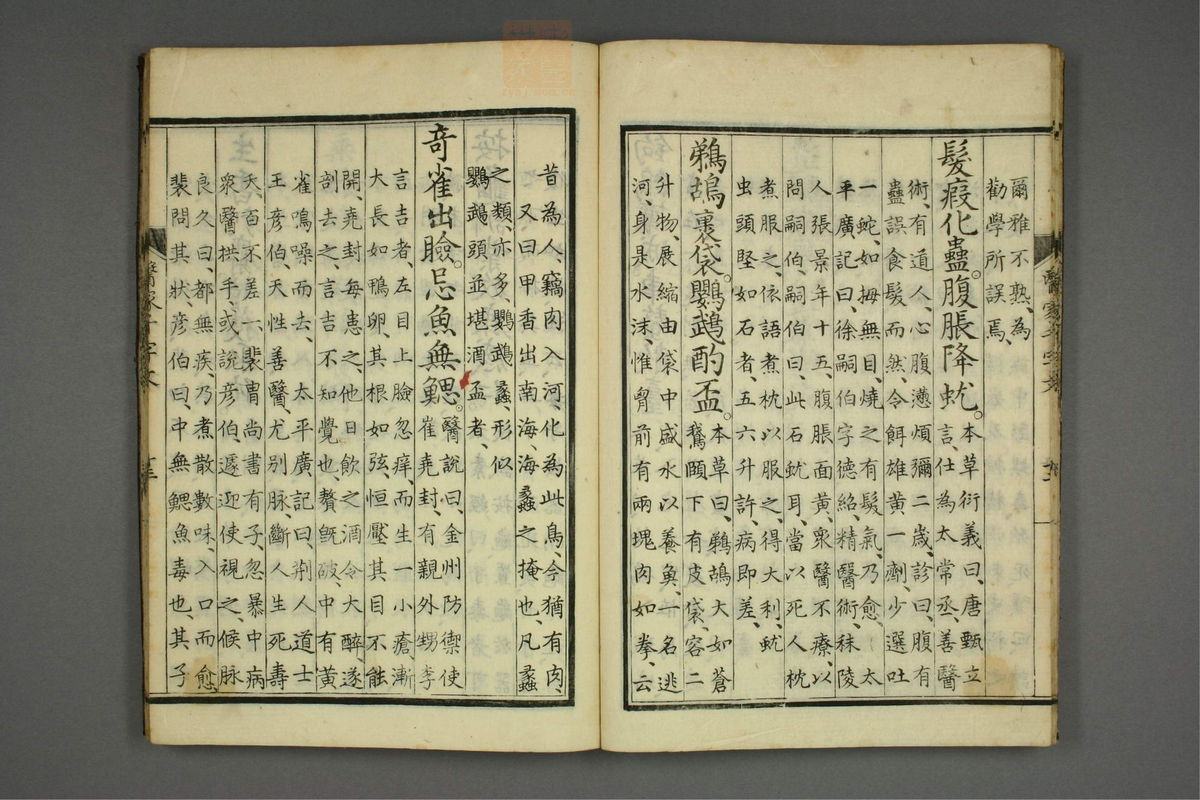 爾雅不熟、為
勸學所誤焉、
髮瘕化蠱。腹脹降蚘。本草衍義曰、唐甄立
言、仕為太常丞、善醫
術、有道人、心腹懣煩彌二歲、診曰、腹有
蠱、誤食髮而然、令餌雄黃一劑、少選吐
一蛇、如拇無目、燒之有髮氣、乃愈、太
平廣記曰、徐嗣伯字德紹、精醫術、秣陵
人張景年十五、腹脹面黃、眾醫不療、以
問嗣伯、嗣伯曰、此石蚘耳、當以死人枕
煮服之、依語煮枕以服之、得大利、蚘
虫頭堅如石者、五六升許、病即差、
鵜鴣裹袋。鸚鵡酌盃。本草曰、鵜鴣大如蒼
鵝、頤下有皮袋、容二
升物、展縮由袋中盛水以養魚、一名逃
河、身是水沫、惟胷前有兩塊肉如拳、云
昔為人、竊肉入河、化為此鳥、今猶有肉、
又曰甲香出南海、海蠡之掩也、凡蠡
之類、亦多、鸚鵡蠡、形似
鸚鵡頭並堪酒盃者、
奇雀出臉。忌魚無鰓。醫說曰、金州防禦使
崔堯封、有親外甥李
言吉者、左目上臉忽痒、而生一小瘡、漸
大長如鴨卵其根如弦、恒壓其目不能
開、堯封每患之、他日飲之酒、令大醉、遂
剖去之、言吉不知覺也、贅既破、中有黃
雀鳴噪而去、太平廣記曰、荊人道士
王彥伯、天性善醫、尤別脉、斷人生死壽
夭、百不差一、裴胄尚書有子、忽暴中病
眾醫拱手、或說彥伯、遽迎使視之、候脉
良久曰、都無疾、乃煮散數味、入口而愈、
裴問其狀、彥伯曰、中無鰓魚毒也、其子